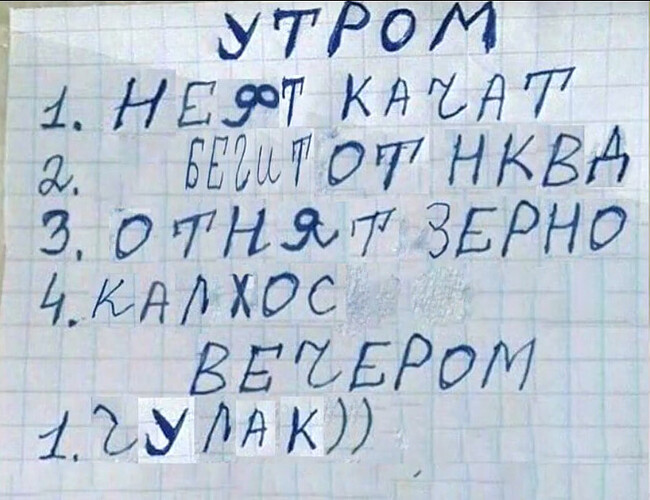 УТРОМ
1. НЕФТ КАЧАТ
2. БЕГИТ ОТ НКВД
3. ОТНЯТ ЗЕРНО
4. КАЛХОС
ВЕЧЕРОМ
1. ГУЛАК))